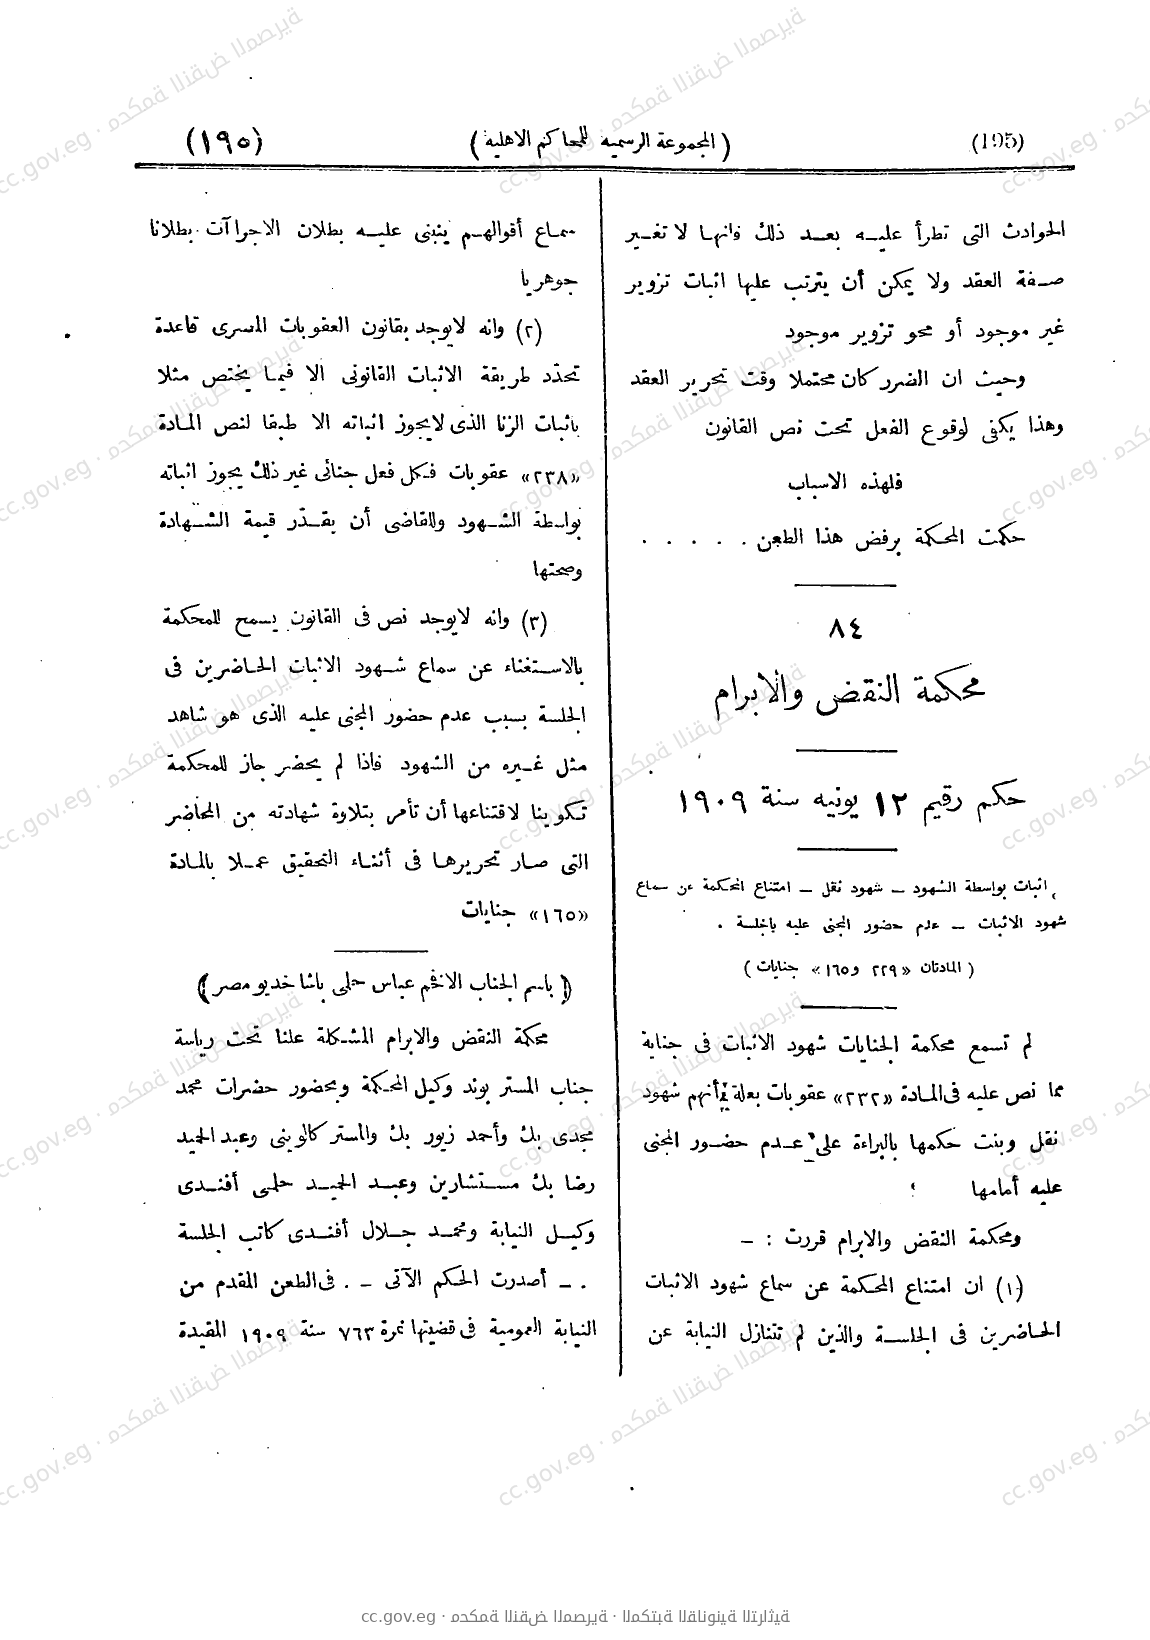 (195) (المجموعة الرسميه للمحاكم الاهلية) (١٩٥)
الحوادث التى تطرأ عليه بعد ذلك فانها لا تغير
صفة العقد ولا يمكن أن يترتب عليها اثبات تزوير
غير موجود أو محو تزوير موجود
وحيث ان الضرر كان محتملا وقت تحرير العقد
وهذا يكفى لوقوع الفعل تحت نص القانون
فلهذه الاسباب
حكمت المحكمة برفض هذا الطعن . . . . .
٨٤
محكمة النقض والابرام
حكم رقيم ١٢ يونيه سنة ١٩٠٩
اثبات بواسطة الشهود – شهود نقل – امتناع المحكمة عن سماع
شهود الاثبات – عدم حضور المجنى عليه بالجلسة .
( المادتان «٢٢٩ و١٦٥» جنايات )
لم تسمع محكمة الجنايات شهود الاثبات فى جناية
مما نص عليه فى المادة «٢٣٢» عقوبات بعلة أنهم شهود
نقل وبنت حكمها بالبراءة على عدم حضور المجنى
عليه أمامها
ومحكمة النقض والابرام قررت : –
(١) ان امتناع المحكمة عن سماع شهود الاثبات
الحاضرين فى الجلسة والذين لم تتنازل النيابة عن
سماع أقوالهم ينبنى عليه بطلان الاجراآت بطلانا
جوهريا
(٢) وانه لايوجد بقانون العقوبات المصرى قاعدة
تحدّد طريقة الاثبات القانونى الا فيما يختص مثلا
باثبات الزنا الذى لايجوز اثباته الا طبقا لنص المادة
«٢٣٨» عقوبات فكل فعل جنائى غير ذلك يجوز اثباته
بواسطة الشهود وللقاضى أن يقدّر قيمة الشهادة
وصحتها
(٣) وانه لايوجد نص فى القانون يسمح للمحكمة
بالاستغناء عن سماع شهود الاثبات الحاضرين فى
الجلسة بسبب عدم حضور المجنى عليه الذى هو شاهد
مثل غيره من الشهود فاذا لم يحضر جاز للمحكمة
تكوينا لاقتناعها أن تأمر بتلاوة شهادته من المحاضر
التى صار تحريرها فى أثناء التحقيق عملا بالمادة
«١٦٥» جنايات
(باسم الجناب الافخم عباس حلمى باشا خديو مصر)
محكمة النقض والابرام المشكلة علنا تحت رياسة
جناب المستر بوند وكيل المحكمة وبحضور حضرات محمد
مجدى بك وأحمد زيور بك والمستر كالوينى وعبد الحميد
رضا بك مستشارين وعبد الحميد حلمى أفندى
وكيل النيابة ومحمد جلال أفندى كاتب الجلسة
. – أصدرت الحكم الآتى – . فى الطعن المقدم من
النيابة العمومية فى قضيتها نمرة ٧٦٣ سنة ١٩٠٩ المقيدة
cc.gov.eg · محكمة النقض المصرية · المكتبة القانونية التراثية